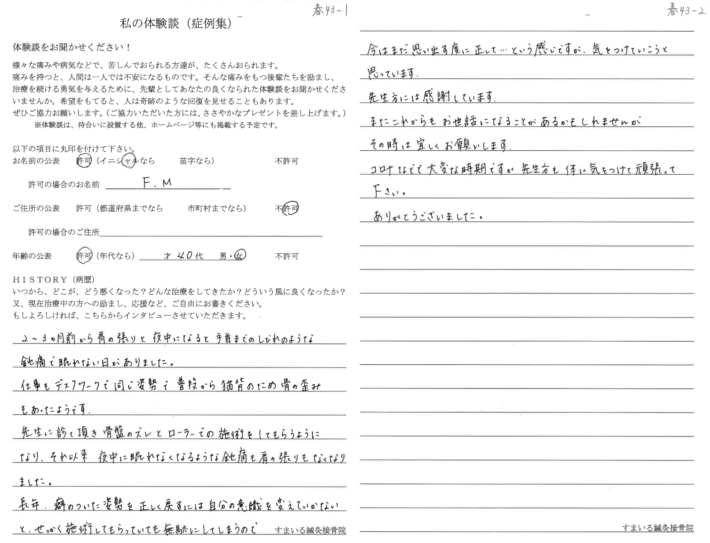 春43-1
私の体験談（症例集）
体験談をお聞かせください！
様々な痛みや病気などで、苦しんでおられる方達が、たくさんおられます。
痛みを持つと、人間は一人では不安になるものです。そんな痛みをもつ後輩たちを励まし、
治療を続ける勇気を与えるために、先輩としてあなたの良くなられた体験談をお聞かせくださ
いませんか。希望をもてると、人は奇跡のような回復を見せることもあります。
ぜひご協力お願いします。（ご協力いただいた方には、ささやかなプレゼントを差し上げます。）
※体験談は、待合いに設置する他、ホームページ等にも掲載する予定です。
以下の項目に丸印を付けて下さい。
お名前の公表　許可（イニシャルなら　苗字なら）　不許可
許可の場合のお名前　F.M
ご住所の公表　許可（都道府県までなら　市町村までなら）　不許可
許可の場合のご住所
年齢の公表　許可（年代なら）　才 40代　男・女　不許可
ＨＩＳＴＯＲＹ（病歴）
いつから、どこが、どう悪くなった？どんな治療をしてきたか？どういう風に良くなったか？
又、現在治療中の方への励まし、応援など、ご自由にお書きください。
もしよろしければ、こちらからインタビューさせていただきます。
2〜3カ月前から肩の張りと夜中になると手首までのしびれのような
鈍痛で眠れない日がありました。
仕事もデスクワークで同じ姿勢で普段から猫背のため骨の歪み
もあったようです。
先生に診て頂き骨盤のズレとローラーでの施術をしてもらうように
なり、それ以来 夜中に眠れなくなるような鈍痛も肩の張りもなくなり
ました。
長年、癖のついた姿勢を正しく戻すには自分の意識を変えていかない
と、せっかく施術してもらっていても無駄にしてしまうので
すまいる鍼灸接骨院
春43-2
今はまだ思い出す度に正して…という感じですが、気をつけていこうと
思っています。
先生方には感謝しています。
またこれからもお世話になることがあるかもしれませんが
その時は宜しくお願いします。
コロナなどで大変な時期ですが先生方も体に気をつけて頑張って
下さい。
ありがとうございました。
すまいる鍼灸接骨院